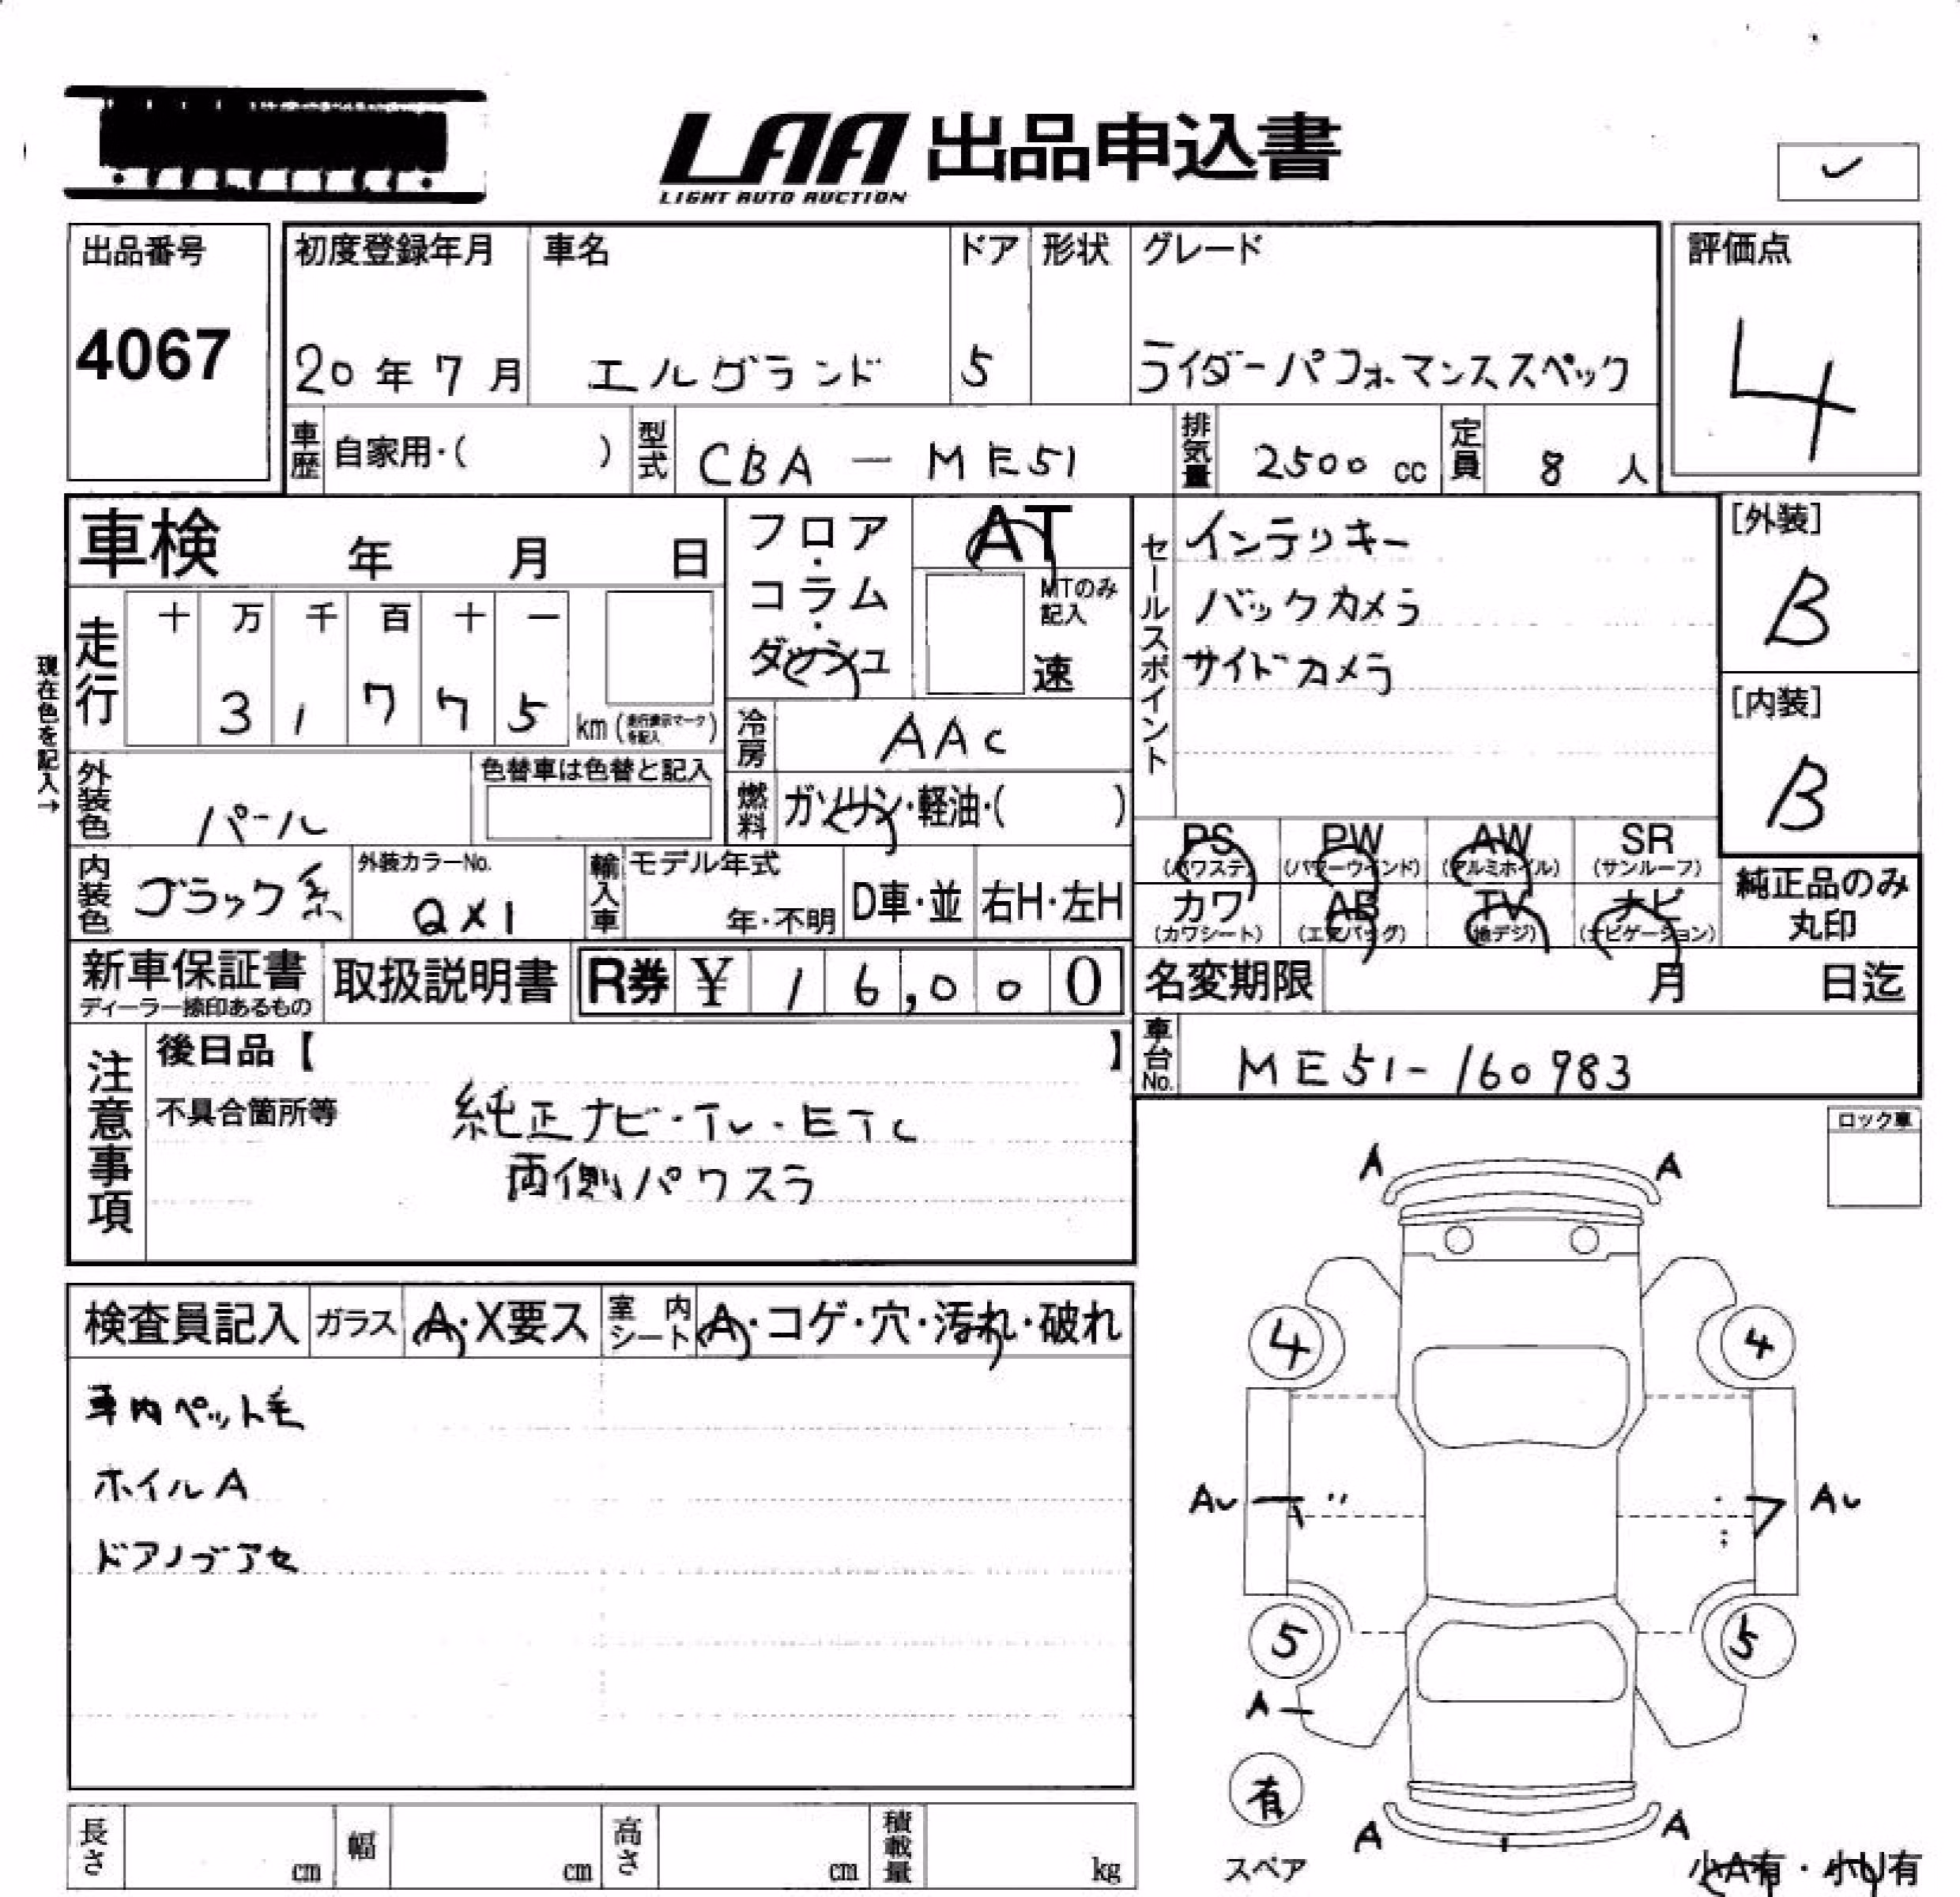 LAA 出品申込書
LIGHT AUTO AUCTION
出品番号
4067
初度登録年月 車名 ドア 形状 グレード
20年 7月 エルグランド 5 ライダーパフォーマンススペック
評価点
4
車歴 自家用・( ) 型式 CBA - ME51 排気量 2500 cc 定員 8 人
車検 年 月 日
フロア・コラム・ダッシュ
AT
MTのみ記入
速
セールスポイント
インテリキー
バックカメラ
サイドカメラ
[外装]
B
[内装]
B
現在色を記入→
走行 十 万 千 百 十 一
3 1 7 7 5 km (走行表示マークを記入)
冷房 AAC
燃料 ガソリン・軽油・( )
外装色 パール
色替車は色替と記入
内装色 ブラック系
外装カラーNo.
QX1
輸入車 モデル年式
年・不明 D車・並 右H・左H
PS PW AW SR
(パワステ) (パワーウインド) (アルミホイル) (サンルーフ)
カワ AB TV ナビ
(カワシート) (エアバッグ) (地デジ) (ナビゲーション)
純正品のみ
丸印
新車保証書
ディーラー捺印あるもの
取扱説明書
R券 ¥ 1 6,0 0 0
名変期限 月 日迄
車台No. ME51-160983
注意事項
後日品【 】
不具合箇所等
純正ナビ・TV・ETC
両側パワスラ
ロック車
検査員記入 ガラス A・X要ス 室内シート A・コゲ・穴・汚れ・破れ
車内ペット毛
ホイルA
ドアノブアセ
A A
4 4
AU AU
5 5
A
有
スペア
A A
小A有・小U有
長さ cm 幅 cm 高さ cm 積載量 kg